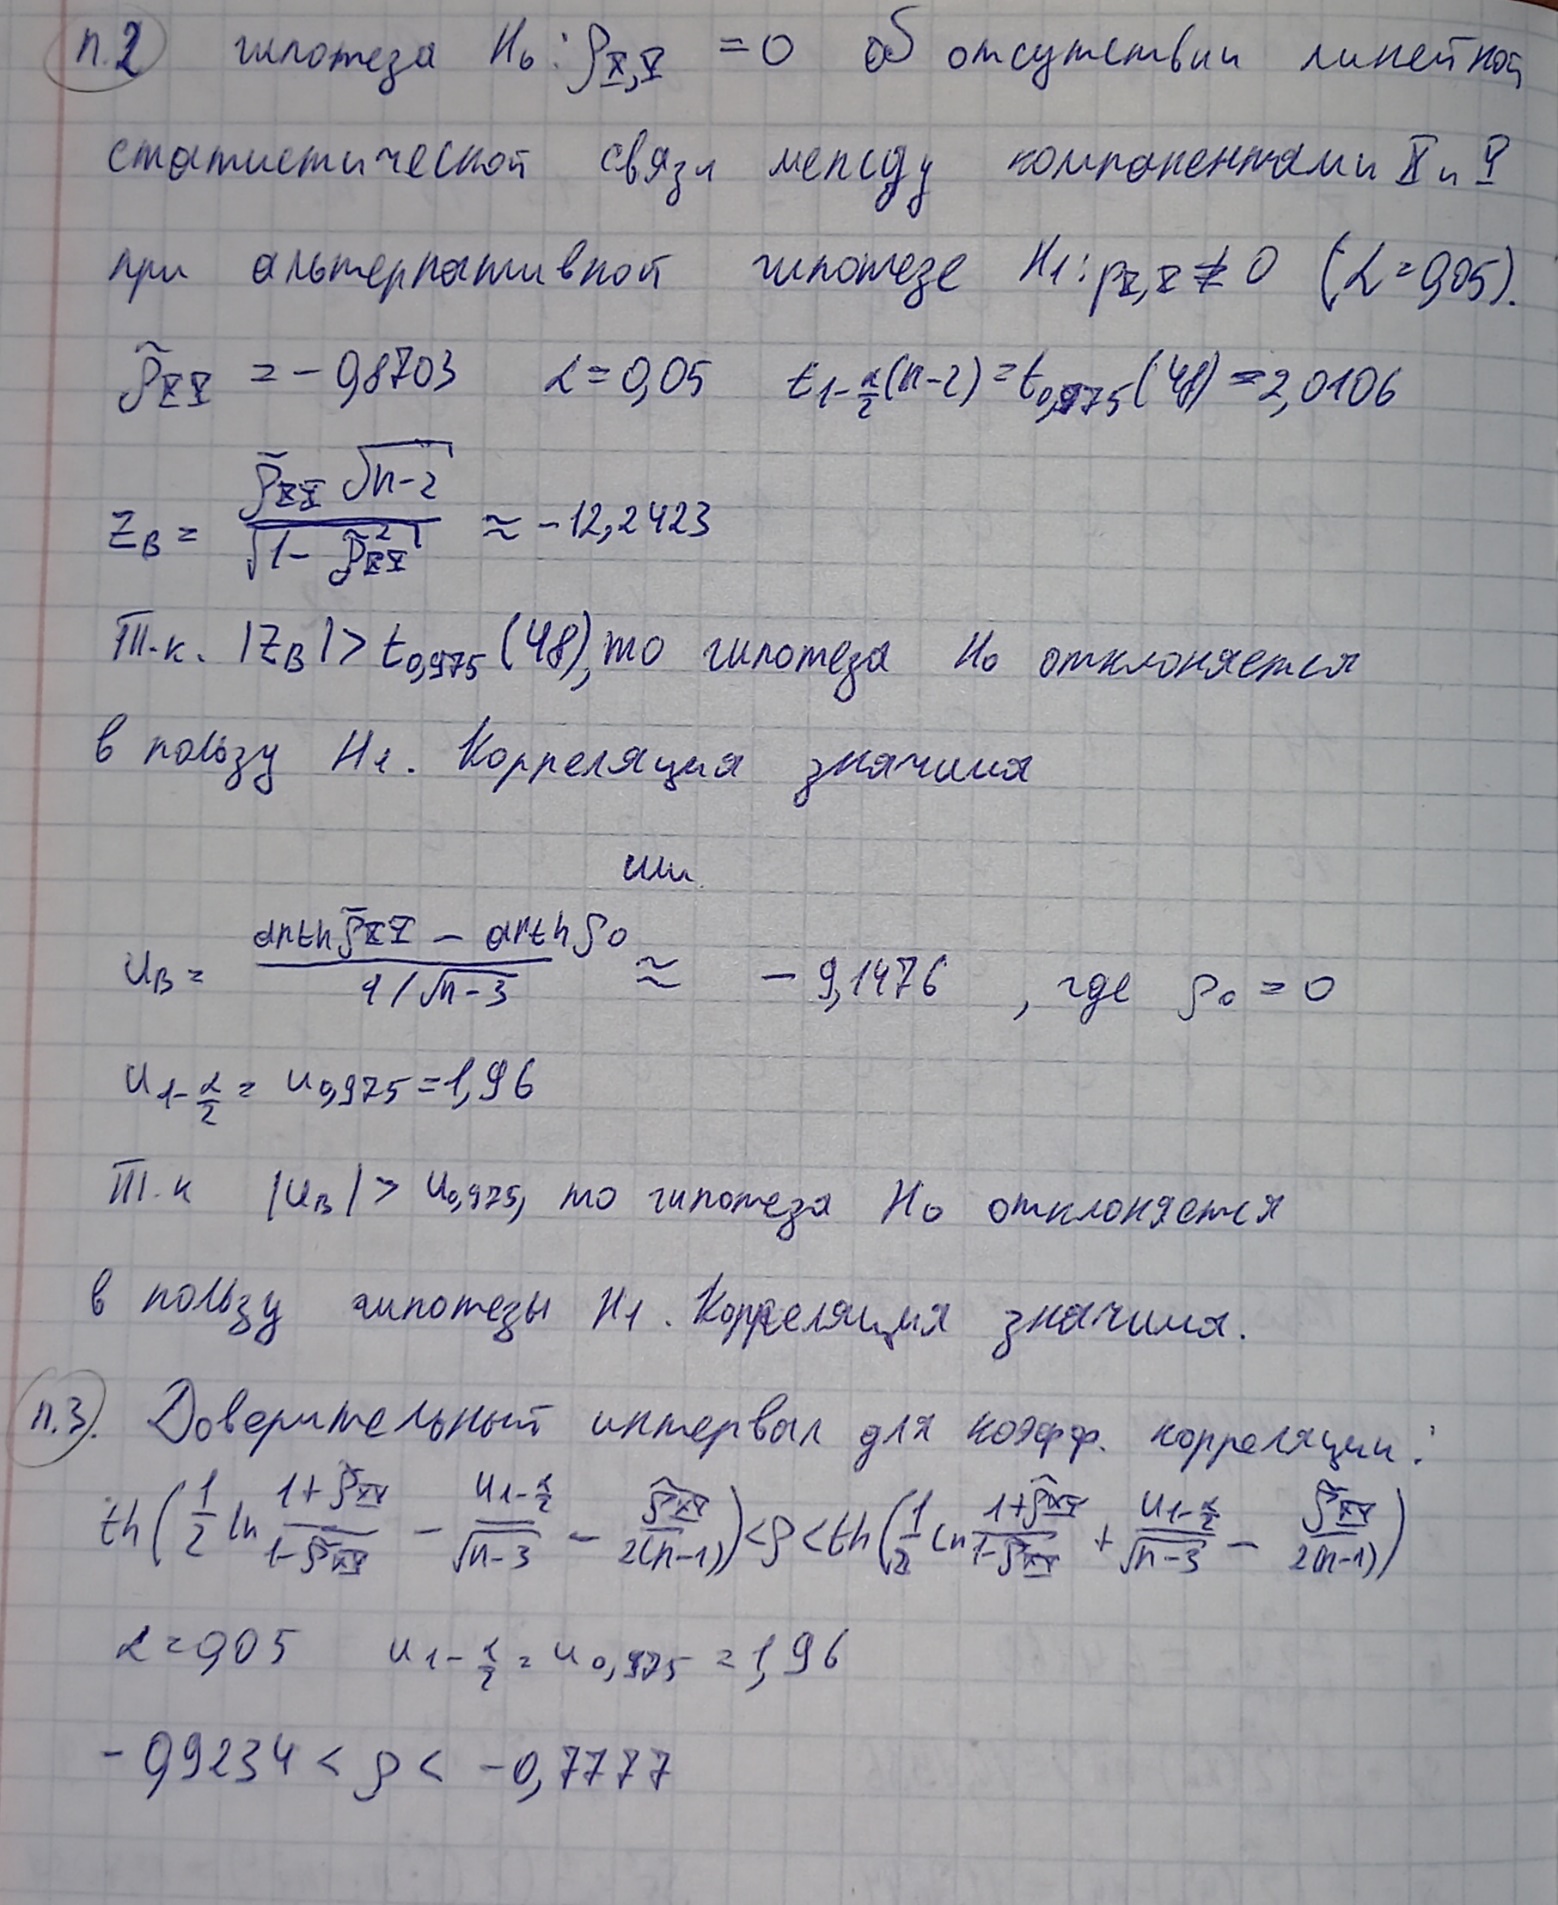 п.2 гипотеза H₀: ρ_X,Y = 0 об отсутствии линейной
статистической связи между компонентами X и Y
при альтернативной гипотезе H₁: ρ_X,Y ≠ 0 (α = 0,05).
ρ̃_XY = - 0,8703 α = 0,05 t_{1-α/2}(n-2) = t_{0,975}(48) = 2,0106
Z_B = ρ̃_XY √(n-2) / √(1 - ρ̃²_XY) ≈ -12,2423
Т.к. |Z_B| > t_{0,975}(48), то гипотеза H₀ отклоняется
в пользу H₁. Корреляция значима
или
u_B = (arth ρ̃_XY - arth ρ₀) / (1/√(n-3)) ≈ - 9,1476 , где ρ₀ = 0
u_{1-α/2} = u_{0,975} = 1,96
Т.к |u_B| > u_{0,975}, то гипотеза H₀ отклоняется
в пользу гипотезы H₁. Корреляция значима.
п.3. Доверительный интервал для коэфф. корреляции:
th(1/2 ln (1+ρ̃_XY)/(1-ρ̃_XY) - u_{1-α/2}/√(n-3) - ρ̃_XY/2(n-1)) < ρ < th(1/2 ln (1+ρ̃_XY)/(1-ρ̃_XY) + u_{1-α/2}/√(n-3) - ρ̃_XY/2(n-1))
α = 0,05 u_{1-α/2} = u_{0,975} = 1,96
- 0,9234 < ρ < -0,7777